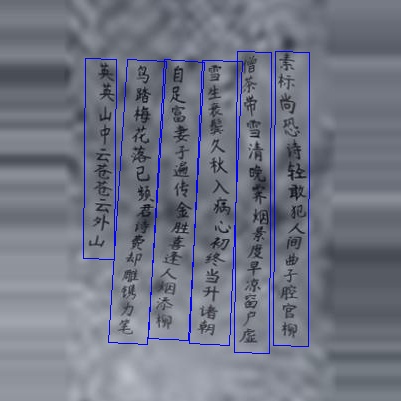 素标尚恐诗轻敢犯人间曲子腔官柳
僧茶带雪清晚霁烟景度早凉窗户虚
雪生衰鬓久秋入病心初终当升诸朝
自足富妻子遍传金胜喜逢人烟添柳
鸟踏梅花落已频君诗费却雕镌为笔
英英山中云苍苍云外山